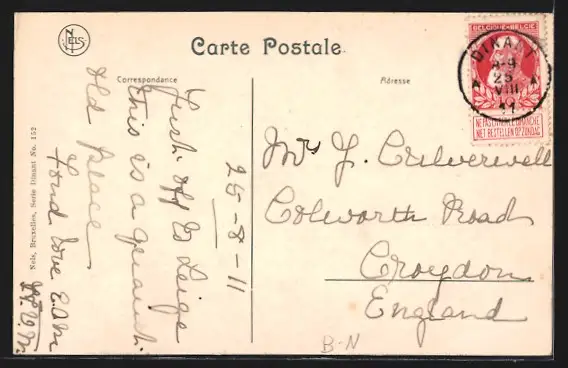 NELS
Carte Postale.
Correspondance
Adresse
BELGIQUE·BELGIE
DINANT
8-9
25
VIII
NE PAS LIVRER LE DIMANCHE
NIET BESTELLEN OP ZONDAG
25-8-11
Just off to Liege
This is a quaint
old place
Fond love E.A.M
Mrs J. Culverwell
Colworth Road
Croydon
England
B-N
Nels, Bruxelles, Serie Dinant No. 152